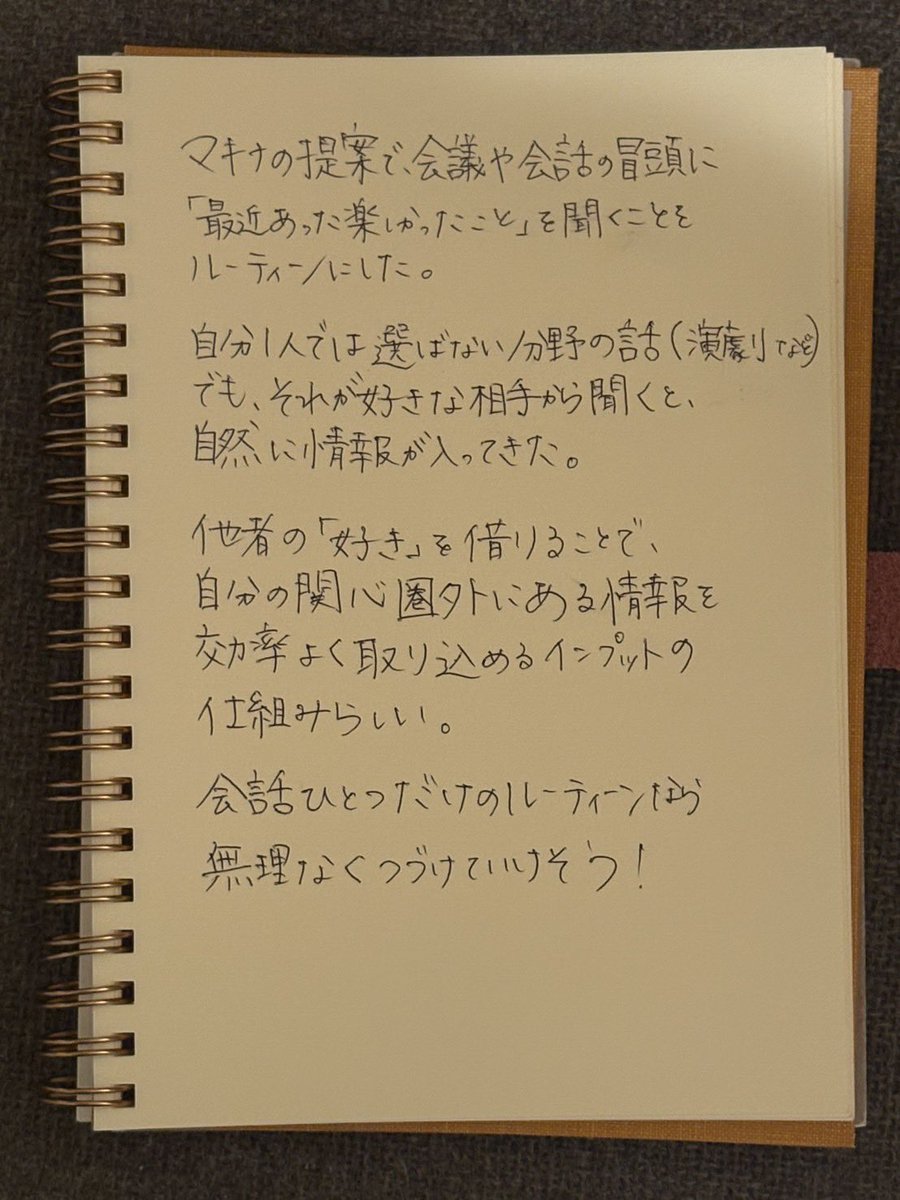 マキナの提案で、会議や会話の冒頭に
「最近あった楽しかったこと」を聞くことを
ルーティーンにした。
自分1人では選ばない分野の話(演劇など)
でも、それが好きな相手から聞くと、
自然に情報が入ってきた。
他者の「好き」を借りることで、
自分の関心圏外にある情報を
効率よく取り込めるインプットの
仕組みらしい。
会話ひとつだけのルーティーンなら
無理なくつづけていけそう!